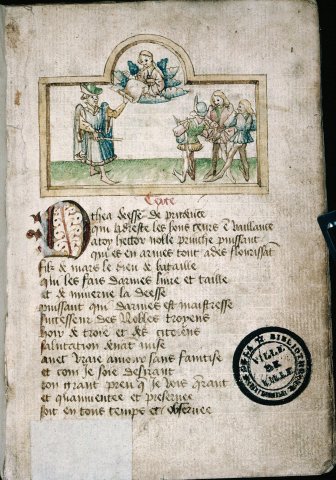 Texte
Othea deesse de prudence
Qui adreste les bons ceurs e vaillance
A toy hector noble prinche puissant
Qui es en armes tout ades flourissat
Filz de mars le dieu de bataille
Qui les fais darmes liure et taille
Et de minerue la deesse
Puissant qui darmes est maistresse
Successeur des Nobles troyens
hoir de troie et des citoiens
Salutation deuat mise
auec vraie amour sans faintise
Et com Je soie desirant
ton grant preu q̃ Je vois querant
et augmentee et preseruee
soit en tous temps et obseruee
VILLE
DE
LILLE